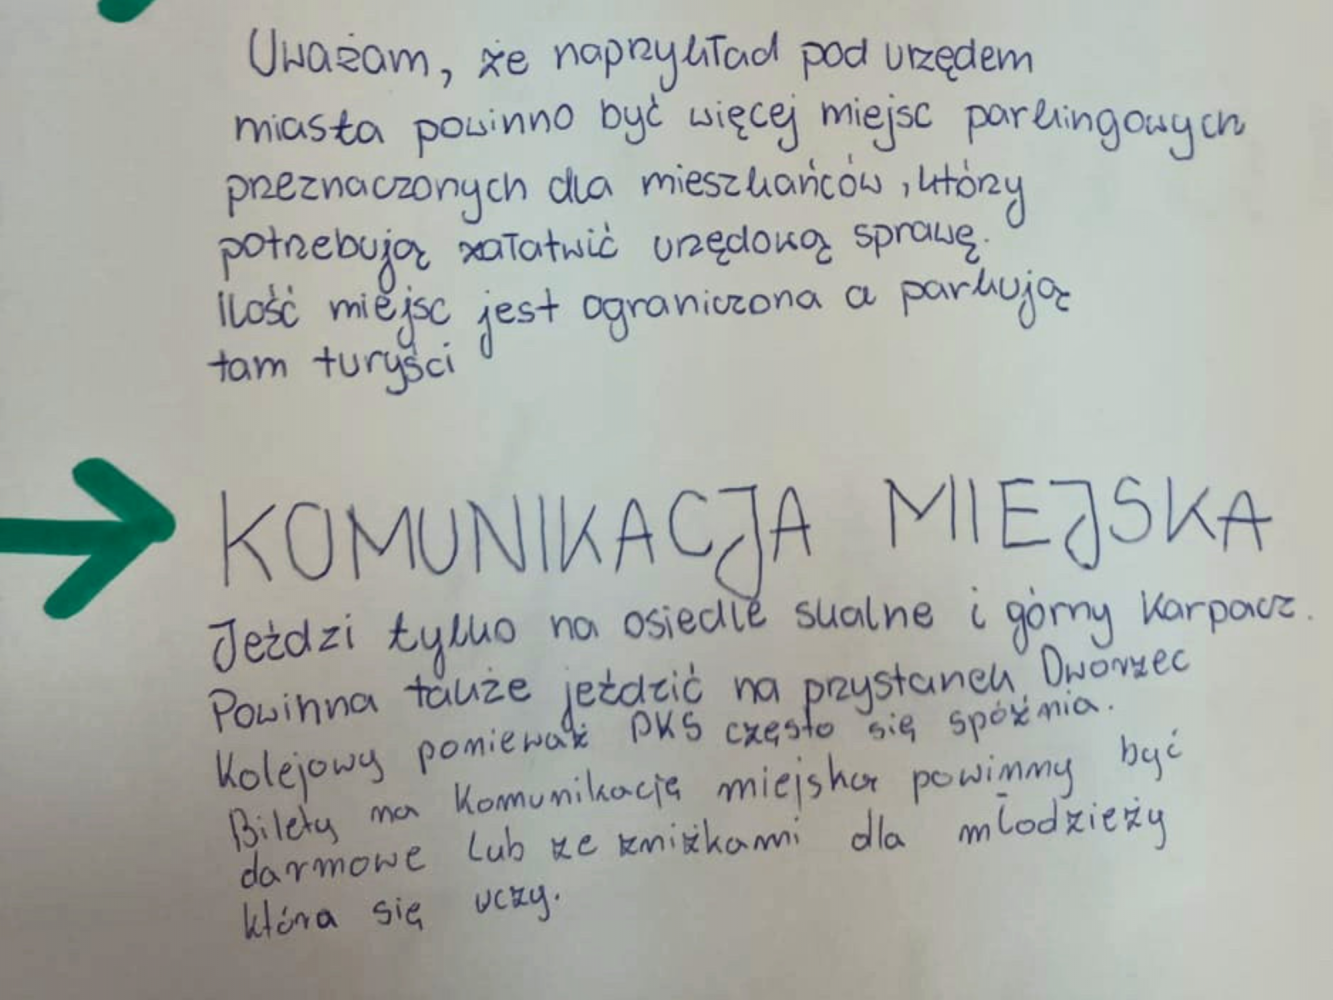 Uważam, że naprzykład pod urzędem
miasta powinno być więcej miejsc parkingowych
przeznaczonych dla mieszkańców, którzy
potrzebują załatwić urzędową sprawę.
Ilość miejsc jest ograniczona a parkują
tam turyści
KOMUNIKACJA MIEJSKA
Jeździ tylko na osiedle skalne i górny Karpacz.
Powinna także jeździć na przystanek Dworzec
Kolejowy ponieważ PKS często się spóźnia.
Bilety na Komunikację miejską powinny być
darmowe lub ze zniżkami dla młodzieży
która się uczy.